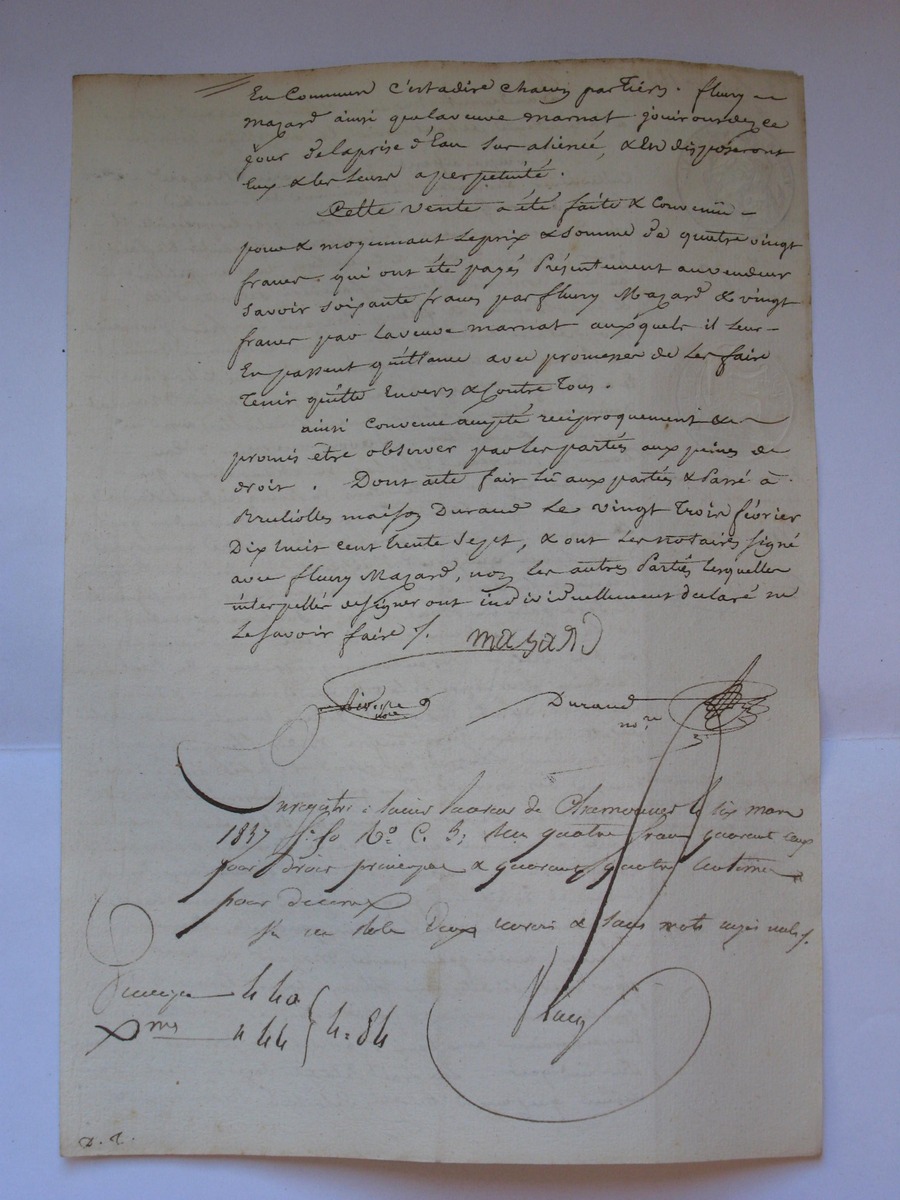 En Commun c'estadire chacun par tiers. fleury
mazard ainsi que laveuve marnat jouirons dez ce
jour de laprise d'Eau sur aliénée, & En disposeront
Eux & les leurs a perpétuité.
Cette vente a été faite & Convenüe
pour & moyennant le prix & somme de quatre vingt
francs qui ont été payés Présentement au vendeur
savoir soixante francs par fleury Mazard & vingt
francs par la veuve marnat auxquels il leur
En passent quittance avec promesse de les faire
Tenir quitte Envers & Contre Tous.
ainsi convenu accepté réciproquement &
promis être observer par les parties aux peines de
droit. Dont acte fait lû aux parties & Passé à
Brullioles maison Durand Le vingt Trois février
Dix huit cent trente Sept, & ont les notaires signé
avec fleury Mazard, non les autres Parties lesquelles
interpellées designer ont individuellement declaré ne
Le savoir faire /.
mazard
Durand
nore
nore
Enregistré à Saint Laurent de Chamousset le six mars
1837 fo Ro C. 5; reçu quatre francs quarante cents
pour droit principal & quarante quatre centimes
pour decime
deux renvois & sans mots rayés nuls /.
Principal 4 40
Xmes " 44 } 4=84
D. R.